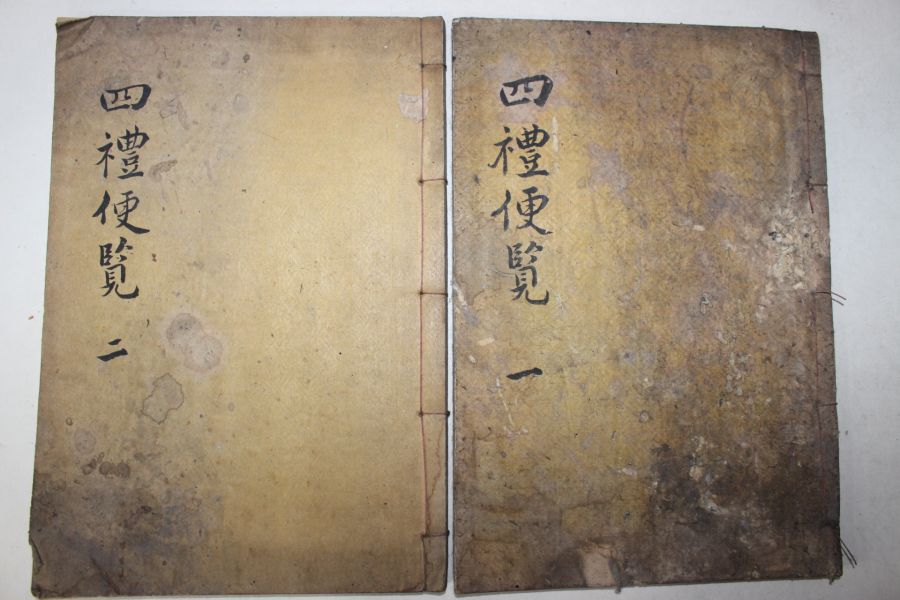 四禮便覧 一
四禮便覧 二